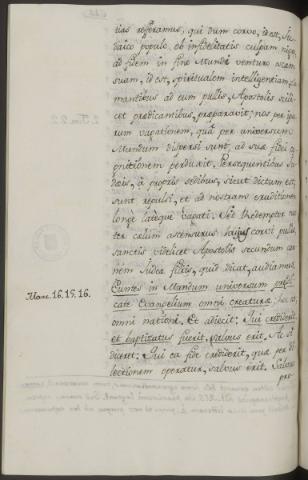 tias referamus, qui dum corvo, id est, Ju-
daico populo, ob infidelitatis culpam nigro
ad fidem in fine Mundi venturo escam
suam, id est, spiritualem intelligentiam, cla-
mantibus ad eum pullis, Apostolis scili-
cet predicantibus, præparavit, nos per ipso-
rum vagationem, qua per universum
Mundum dispersi sunt, ad suæ fidei co-
gnitionem perduxit. Persequentibus Ju-
dæis, à propris sedibus, sicut dictum est,
sunt repulsi, et ad nostram eruditionem
longè lateque vagati. Sic Redemptor nos-
ter cælum ascensurus hujus corvi pullis,
sanctis videlicet Apostolis secundum car-
nem Judeæ filiis, quid dicat, audiamus.
Marc. 16. 15. 16.
Euntes in Mundum universum prædi-
cate Evangelium omni creaturæ, hoc est,
omni nationi. Et adiecit: Qui crediderit,
et baptizatus fuerit, salvus erit. Ac si
diceret: Qui ea fide crediderit, quæ per di-
lectionem operatur, salvus erit. Salvus
pro-